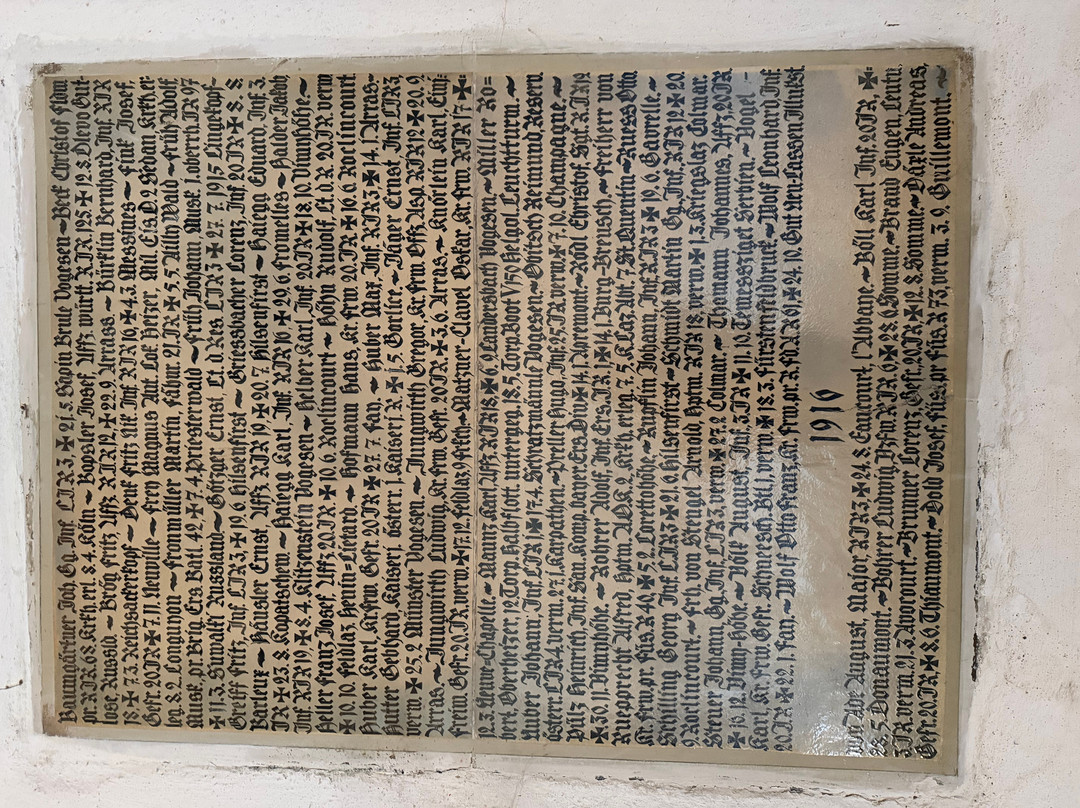 Baumgärtner Joh. Gg. Inf. LIR 3. ✠ 21.5. Sigan Brule Vogesen ~ Beck Christof
pr. RIR 68 Krkh. erl. 8.4. Köln ~ Josef Uffz. württ. RIR 125 ✠ 12.8. Olevo Gut-
lose, Russld. ~ Broy Fritz Uffz. RIR 12 ✠ 29.9. Arras ~ Bürklin Bernhard, Inf. RIR
18 ✠ 7.3. Reichsackerkopf ~ Fritz Utf. Inf. RIR 16, ✠ 4.3. Messines ~ Fink Josef,
Gefr. 20 IR ✠ 7.11. Neuville ~ Frey Magnus
ley 8.2. Longuyon ~ Fronmüller Martin, 21 IR ✠ 5.5. Ailly Wald ~ Früh Adolf
Musk. pr. Brig. Ers. Batl. 42 ✠ 7.4. Priesterwald ~ Frith Johann Musk. 1. oberrh. IR 97
✠ 11.3. Suwalki Russland ~ Görger Ernst Lt. d. Res. LIR 3 ✠ 27.7.1915 Lingekopf ~
Greiff Fritz, Inf. LIR 3, ✠ 19.6. Hilsenfirst ~ Griessbacher Lorenz, Inf. 20 IR ✠ 8.8.
Barlenz ~ Häusler Ernst, Uffz. RIR 19 ✠ 20.7. Hilsenfirst ~ Haeng Eduard Inf. 3.
IR ✠ 23.8. Kopatschem ~ Hanegg Karl, Inf. RIR 16 ✠ 29.6. Fromelles ~ Haider Jakob,
Inf. RIR 19 ✠ 8.4. Klitzenstein Vogesen ~ Helber Karl, Inf. 20 IR ✠ 18.10. Vimyhöhe ~
Heller Franz Josef, Uffz. 20 IR. ✠ 10.6. Roclincourt ~ Höhn Rudolf, Lt. d. R. 20 IR. verw
✠ 10. Feldlaz. Henin-Lietard. ~ Hofmann Hans, Kr. frw. 20 IR ✠ 16.6. Roclincourt.
Huber Karl, Kr. frw. Gefr. 20 IR ✠ 27.7. Fay. ~ Huber Max, Inf. RIR 3 ✠ 14.1. Arras ~
Hutter Gebhard, Kaiserj. österr. 1. Kaiserj. R. ✠ 1.5. Gorlice ~ Jäger Ernst Inf. LIR 3,
verw. ✠ 25.2. Münster Vogesen ~ Jungwirth Gregor, Kr. frw. Off. Asp. RIR 12 ✠ 20.9.
Arras. ~ Jungwirth Ludwig, Kr. frw. Gefr. 20 IR ✠ 3.6. Arras ~ Knörlein Karl, Einj.
freiw. Gefr. 20 IR, verw. ✠ 17.12. Feldlaz. 9 ~ Matzner-Clavel Oskar, Kr. frw. RIR 17 ✠
12.3. Neuve-Chapelle ~ Metz Karl, Uffz. RIR 18 ✠ 6.9. Landersbach Vogesen. ~ Miller Ro=
bert, Oberheizer, 12. Torp. Halbflott. unterges. 18.5. Torp. Boot V 150 Helgol. Leuchtturm. ~
Nuber Johann, Inf. LIR 1, ✠ 17.4. Schratzmännle Vogesen ~ Heinrich Reinmund Reserv
österr. LIR 4. verm. 27.1. Karpathen. ~ Preller Hugo, Inf. 25. IR, verw. ✠ 7.10. Champagne ~
Pölz Heinrich, Inf. San. Komp. bayer. Ers. Div ✠ 14.1. Noremont ~ Rödl Christof Sgt. R. IR 12
✠ 30.11. Vimyhöhe. ~ Rohrer Adolf, Inf. Ers. IR. 1 ✠ 14.1. Burg-Breusch, ~ Freiherr von
Ruepprecht Alfred, Hptm. AOK 2, Krkh. erleg. 7.5. K. Laz. Abt. 7. St. Quentin ~ Ruess Otto
Kr. frw. pr. Füs. R. 40, ✠ 5.2. Lorettohöhe ~ Rumpflin Johann, Inf. RIR 3 ✠ 19.6. Gavrelle. ~
Schilling Georg, Inf. LIR 3 ✠ 21.6. Hilsenfirst ~ Schmid Martin Gg. Inf. RIR 12 ✠ 20.
9. Roclintourt. ~ Frh. von Stengel Arnold Hptm. RIR 18 verw. ✠ 1.3. Kriegslaz. Colmar.
Sterner Johann, Gg. Inf. LIR 3, verw. ✠ 27.2. Colmar. ~ Themann Johannes, Uffz. 20 IR
✠ 6.12. Vimy-Höhe ~ Völk August Inf. 3. IR ✠ 11.10. Temessziget Serbien. ~ Vogel ~
Karl, Kr. frw. Gefr. Schwersch. Bett. verw. ✠ 18.3. Fürstenfeldbruck ~ Wolf Leonhard, Inf.
20. IR ✠ 22.1. Fay. ~ Wolf Otto Franz, Kr. frw. pr. R. Fd. AR 69, ✠ 24.10. Gut Neu-Lassen Illurt.
1916
August, Major, RIR 3 ✠ 24.8. Eaucourt l'Abbaye. ~ Böll Karl Inf. 20 IR, ✠
28.5. Douaumont. ~ Bohrer Ludwig, Vzfw. RIR 6, ✠ 28.6. Somme. ~ Brand Eugen, Leut.
3. IR, verm. 21.3. Avocourt. ~ Brunner Lorenz, Gefr., 20 IR ✠ 12.8. Somme ~ Däxle Andreas,
Gefr. 20. IR, ✠ 8.6. Thiaumont. ~ Dold Josef, Füs. pr. Füs. R 73, verm. 3.9. Guillemont. ~